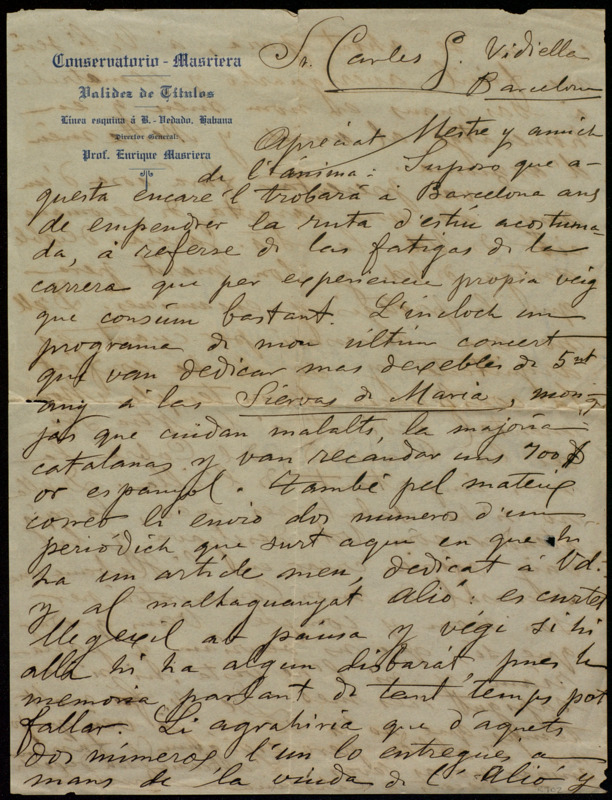 Conservatorio - Masriera
Validez de Títulos
Línea esquina á B. - Vedado, Habana
Director General:
Prof. Enrique Masriera
Sr. Carles G. Vidiella
Barcelona
Apreciat Mestre y amich
de l'ánima: Suposo que a-
questa encare 'l trobará á Barcelona ans
de empendrer la ruta d'estiu acostuma-
da, á referse de las fatigas de la
carrera que per experiencia propia veig
que consúm bastant. L'incloch un
programa de mon últim concert
que van dedicar mas dexebles de 5nt
any á las Siervas de Maria, mon-
jas que cuidan malalts, la majoría
catalanas y van recaudar uns 700 $
or espanyol. També pel mateix
correo li envio dos numeros d'un
periódich que surt aquí en que hi
ha un article meu, dedicat á Vd.
y al malhaguanyat Alió: es curtet
llegexil ab pausa y vegi si hi
allá hi ha algun disbarat, pues la
memoria parlant de tant temps pot
fallar. Li agrahiria que d'aquets
dos números l'un lo entregués a
mans de la viuda de l'Alió y